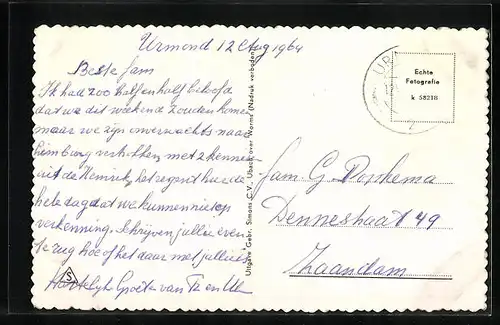 Urmond 12 Aug 1964
Beste fam
Ik had zoo half en half beloofd
dat we dit weekend zouden komen
maar we zijn onverwachts naar
Limburg vertrokken met 2 kennen
uit de Hemrik, het regent hier de
hele dag dat we kunnen niet op
verkenning. Schrijven jullie even
terug hoe of het daar met jullie is
Hartelijk Groeten van T en
Uitgave Gebr. Simons C.V., Ubach over Worms (Nadruk verboden)
S
UR
Echte
Fotografie
k 58218
fam. G. Poskema
Dennestraat 49
Zaandam